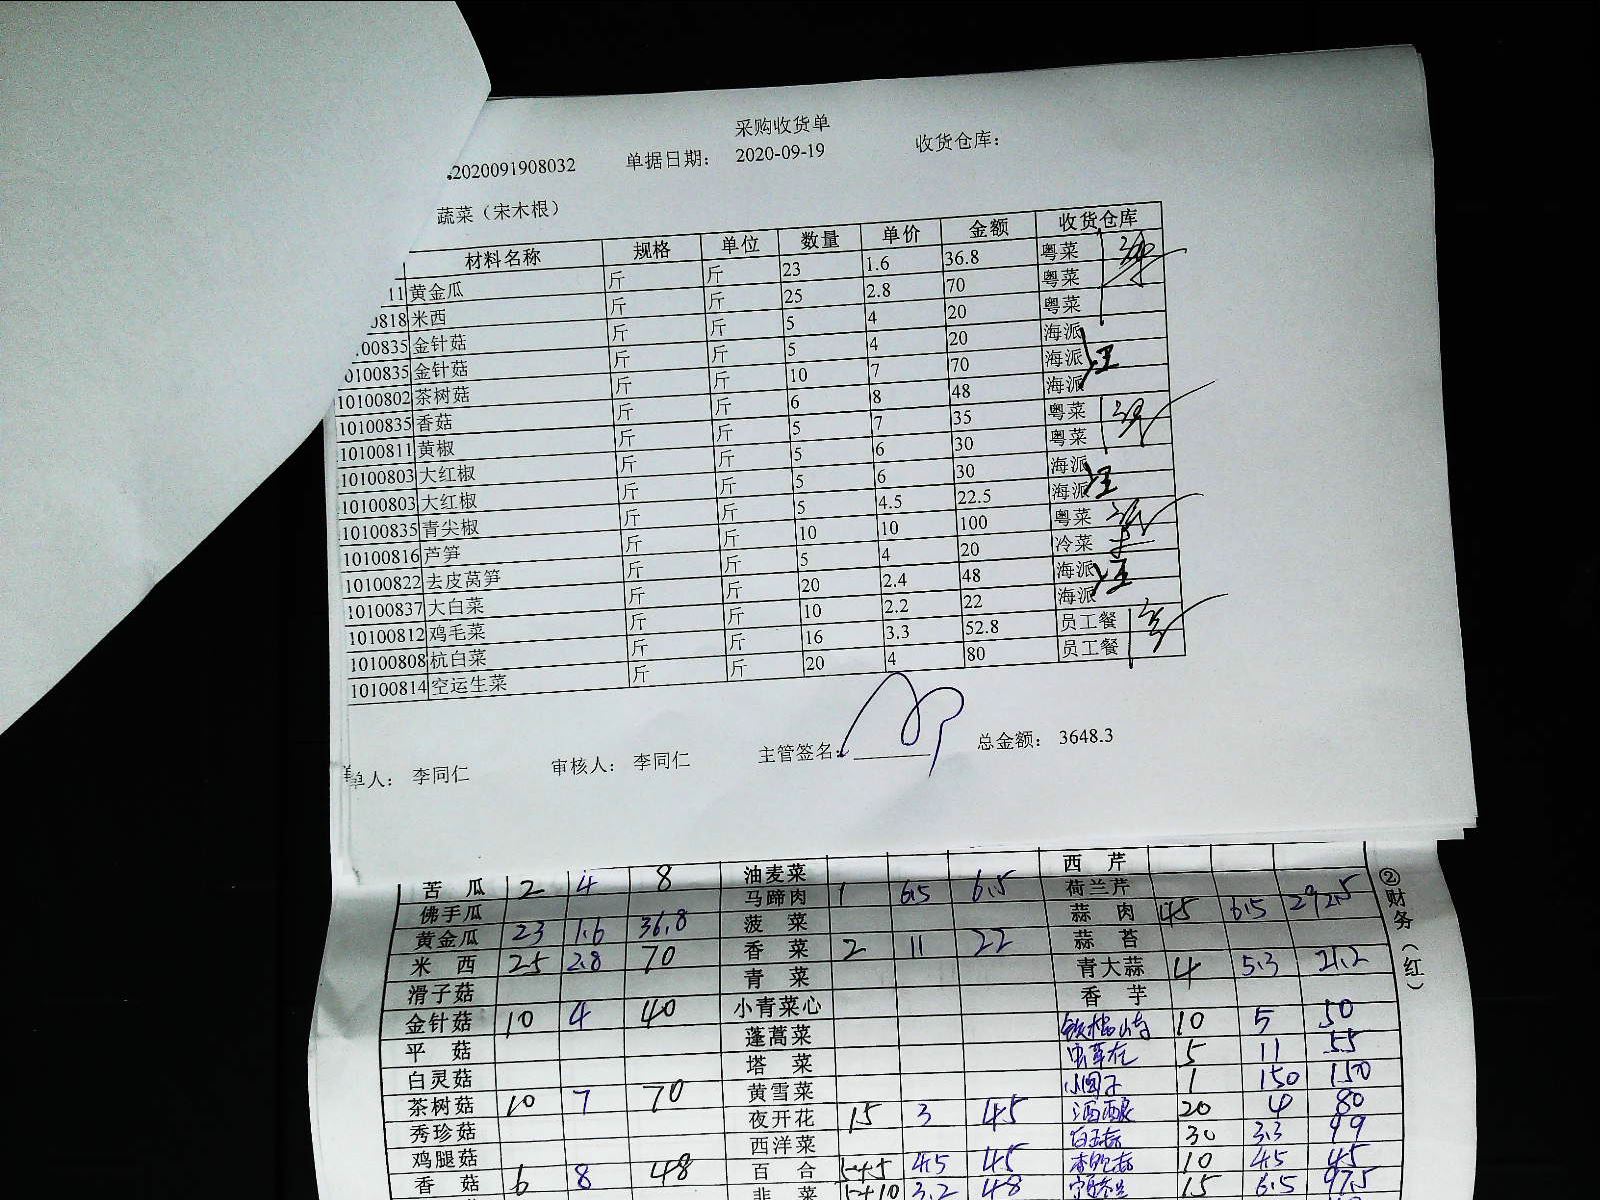 采购收货单
2020091908032 单据日期： 2020-09-19 收货仓库：
蔬菜（宋木根）
材料名称 规格 单位 数量 单价 金额 收货仓库
11 黄金瓜 斤 斤 23 1.6 36.8 粤菜
0818 米西 斤 斤 25 2.8 70 粤菜
00835 金针菇 斤 斤 5 4 20 粤菜
0100835 金针菇 斤 斤 5 4 20 海派
10100802 茶树菇 斤 斤 10 7 70 海派
10100835 香菇 斤 斤 6 8 48 海派
10100811 黄椒 斤 斤 5 7 35 粤菜
10100803 大红椒 斤 斤 5 6 30 粤菜
10100803 大红椒 斤 斤 5 6 30 海派
10100835 青尖椒 斤 斤 5 4.5 22.5 海派
10100816 芦笋 斤 斤 10 10 100 粤菜
10100822 去皮莴笋 斤 斤 5 4 20 冷菜
10100837 大白菜 斤 斤 20 2.4 48 海派
10100812 鸡毛菜 斤 斤 10 2.2 22 海派
10100808 杭白菜 斤 斤 16 3.3 52.8 员工餐
10100814 空运生菜 斤 斤 20 4 80 员工餐
单人： 李同仁 审核人： 李同仁 主管签名： 总金额： 3648.3
苦瓜 2 4 8 油麦菜 西芹
佛手瓜 马蹄肉 1 6.5 6.5 荷兰芹
黄金瓜 23 1.6 36.8 菠菜 蒜肉 45 6.5 292.5
米西 25 2.8 70 香菜 2 11 22 蒜苔
滑子菇 青菜 青大蒜 4 5.3 21.2
金针菇 10 4 40 小青菜心 香芋
平菇 蓬蒿菜 10 5 50
白灵菇 塔菜 虫草花 5 11 55
茶树菇 10 7 70 黄雪菜 1 150 150
秀珍菇 夜开花 15 3 45 酒酿 20 4 80
鸡腿菇 西洋菜 30 3.3 99
香菇 6 8 48 百合 5+5 4.5 45 10 4.5 45
韭菜 5+10 3.2 48 15 6.5 97.5
②财务（红）